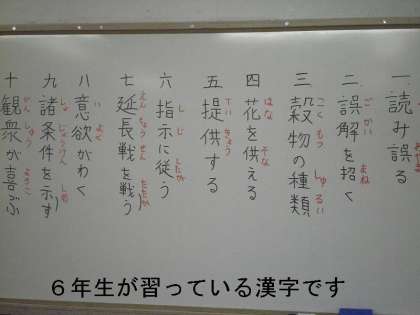 一 読み誤る
あやま
二 誤解を招く
ごかい まね
三 穀物の種類
こくもつ しゅるい
四 花を供える
はな そな
五 提供する
ていきょう
六 指示に従う
しじ したが
七 延長戦を戦う
えんちょうせん たたか
八 意欲がわく
いよく
九 諸条件を示す
しょじょうけん しめ
十 観衆が喜ぶ
かんしゅう よろこ
6年生が習っている漢字です